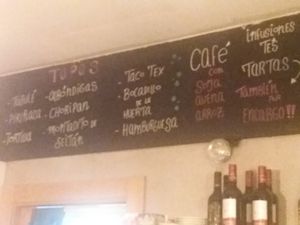 TAPAS
- TABULÉ
- PIRIÑACA
- TORTILLA
- ALBÓNDIGAS
- CHORIPAN
- MONTADITO DE
SEITÁN
- TACO TEX
- BOCADILLO
DE LA
HUERTA
- HAMBURGUESA
CAFÉ
CON
SOJA
AVENA
ARROZ
INFUSIONES
TÉS
TARTAS
TAMBIÉN
POR
ENCARGO!!